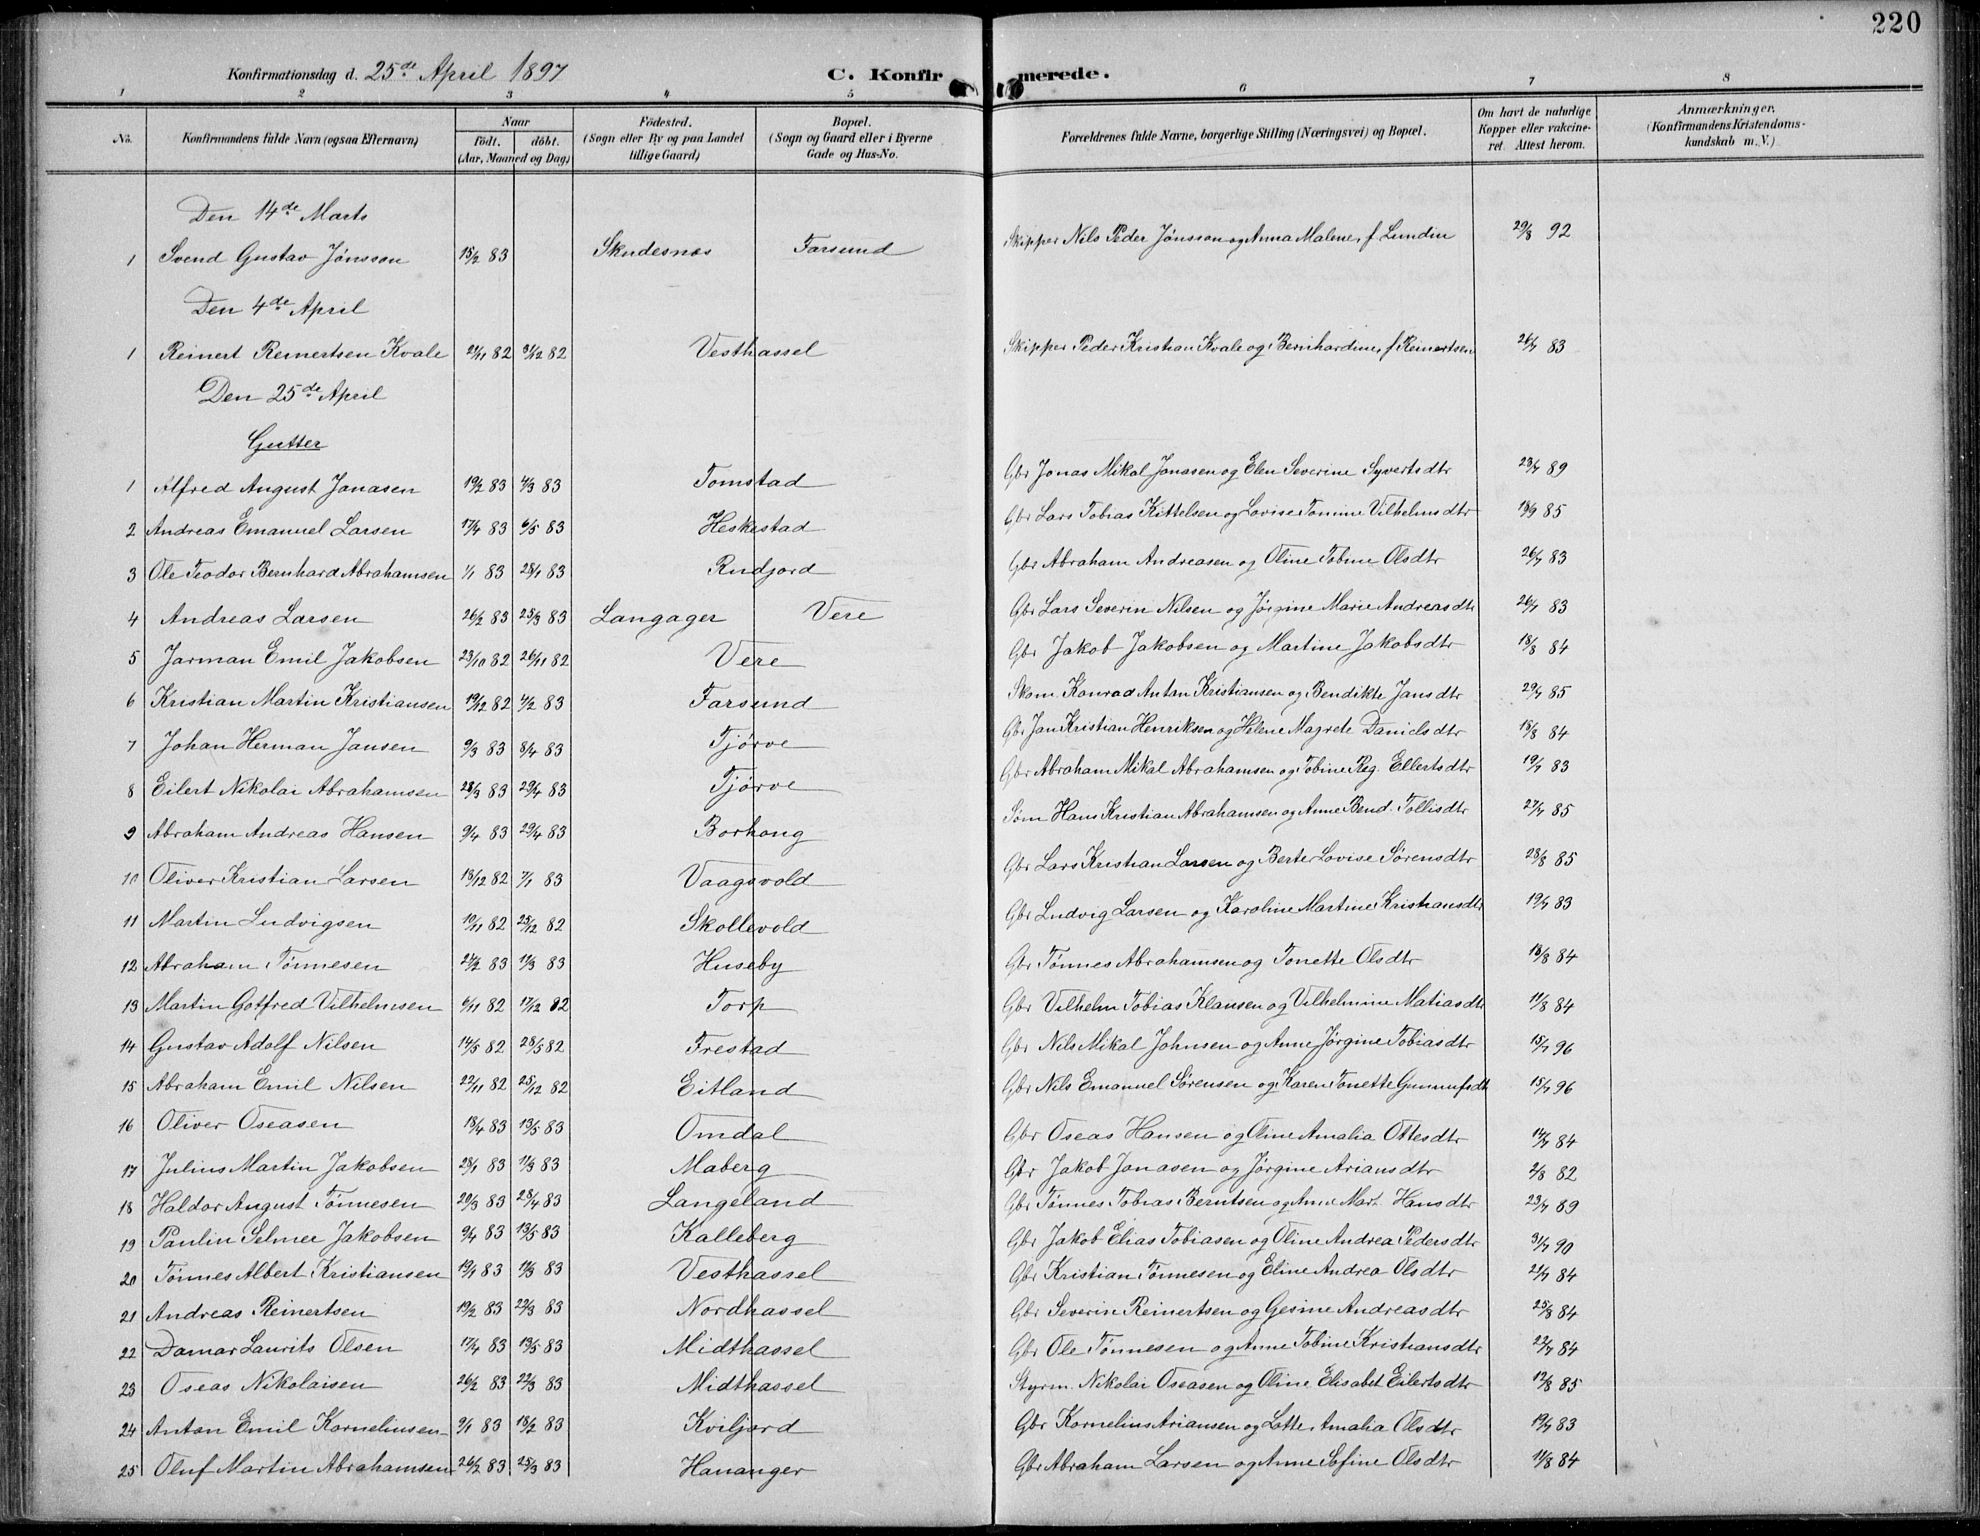 220
Konfirmationsdag d. 25de April 1897 C. Konfirmerede.
1 2 3 4 5 6 7 8
No. Konfirmandens fulde Navn (ogsaa Efternavn) Naar født. døbt. (Aar, Maaned og Dag) Fødested. (Sogn eller By og paa Landet tillige Gaard) Bopæl. (Sogn og Gaard eller i Byerne Gade og Hus-No. Forældrenes fulde Navne, borgerlige Stilling (Næringsvei) og Bopæl. Om havt de naturlige Kopper eller vakcineret. Attest herom. Anmærkninger. (Konfirmandens Kristendomskundskab m. V.)
Den 14de Marts
1 Svend Gustav Jønsson 15/2 83 Skudesnes Farsund Skipper Nils Peder Jønsson og Anna Malene, f. Lundin 29/8 92
Den 4de April
1 Reinert Reinertsen Kvale 21/11 82 31/12 82 Vesthassel Skipper Peder Kristian Kvale og Bernhardine, f. Reinertsen 26/7 83
Den 25de April
Gutter
1 Alfred August Jonasen 19/2 83 4/3 83 Tomstad Gbr Jonas Mikal Jonasen og Elen Severine Syvertsdtr 23/7 89
2 Andreas Emanuel Larsen 17/4 83 6/5 83 Heskestad Gbr Lars Tobias Kittelsen og Lovise Tomine Vilhelmsdtr 18/9 85
3 Ole Teodor Bernhard Abrahamsen 1/1 83 28/1 83 Rudjord Gbr Abraham Andreasen og Oline Tobine Olsdtr 26/7 83
4 Andreas Larsen 26/2 83 25/3 83 Langager Vere Gbr Lars Severin Nilsen og Jørgine Marie Andreasdtr 26/7 83
5 Jarman Emil Jakobsen 23/10 82 26/11 82 Vere Gbr Jakob Jakobsen og Martine Jakobsdtr 18/8 84
6 Kristian Martin Kristiansen 19/12 82 4/2 83 Farsund Skom. Konrad Antan Kristiansen og Bendikte Jansdtr 29/7 85
7 Johan Herman Jansen 9/3 83 8/4 83 Tjørve Gbr Jan Kristian Henriksen og Helene Magrete Danielsdtr 18/8 84
8 Eilert Nikolai Abrahamsen 28/3 83 29/4 83 Tjørve Gbr Abraham Mikal Abrahamsen og Tobine Reg. Ellertsdtr 19/7 83
9 Abraham Andreas Hansen 9/4 83 29/4 83 Borhoug Søm Hans Kristian Abrahamsen og Anne Bend. Tollisdtr 27/7 85
10 Oliver Kristian Larsen 13/12 82 7/1 83 Vaagsvold Gbr Lars Kristian Larsen og Berte Lovise Sørensdtr 28/8 85
11 Martin Ludvigsen 10/11 82 25/12 82 Skollevold Gbr Ludvig Larsen og Karoline Martine Kristiansdtr 19/7 83
12 Abraham Tønnesen 24/2 83 11/3 83 Huseby Gbr Tønnes Abrahamsen og Tonette Olsdtr 18/8 84
13 Martin Gotfred Vilhelmsen 6/11 82 17/12 82 Torp Gbr Vilhelm Tobias Klausen og Vilhelmine Matiasdtr 11/8 84
14 Gustav Adolf Nilsen 14/5 82 28/5 82 Frestad Gbr Nils Mikal Johnsen og Anne Jørgine Tobiasdtr 15/7 96
15 Abraham Emil Nilsen 22/11 82 25/12 82 Eitland Gbr Nils Emanuel Sørensen og Karen Tonette Gunnufsdtr 15/7 96
16 Oliver Oseasen 18/4 83 13/5 83 Omdal Gbr Oseas Hansen og Oline Amalia Ottesdtr 14/7 84
17 Julius Martin Jakobsen 28/1 83 11/3 83 Maberg Gbr Jakob Jonasen og Jørgine Ariansdtr 2/8 82
18 Haldor August Tønnesen 20/3 83 28/4 83 Langeland Gbr Tønnes Tobias Berntsen og Anne Mart. Hansdtr 23/7 89
19 Paulin Selmer Jakobsen 9/4 83 13/5 83 Kalleberg Gbr Jakob Elias Tobiasen og Oline Andrea Pedersdtr 31/7 90
20 Tønnes Albert Kristiansen 19/1 83 11/3 83 Vesthassel Gbr Kristian Tønnesen og Eline Andrea Olsdtr 21/7 84
21 Andreas Reinertsen 19/2 83 22/3 83 Nordhassel Gbr Severin Reinertsen og Gesine Andreasdtr 25/8 84
22 Damar Laurits Olsen 17/4 83 13/5 83 Midthassel Gbr Ole Tønnesen og Anne Tobine Kristiansdtr 22/7 84
23 Oseas Nikolaisen 26/2 83 22/3 83 Midthassel Styrm. Nikolai Oseasen og Oline Elisabet Eilertsdtr 12/8 85
24 Anton Emil Kornelinsen 9/1 83 18/2 83 Kviljord Gbr Kornelius Ariansen og Lotte Amalia Olsdtr 19/7 83
25 Oluf Martin Abrahamsen 26/2 83 25/3 83 Hananger Gbr Abraham Larsen og Anne Sofine Olsdtr 11/8 84